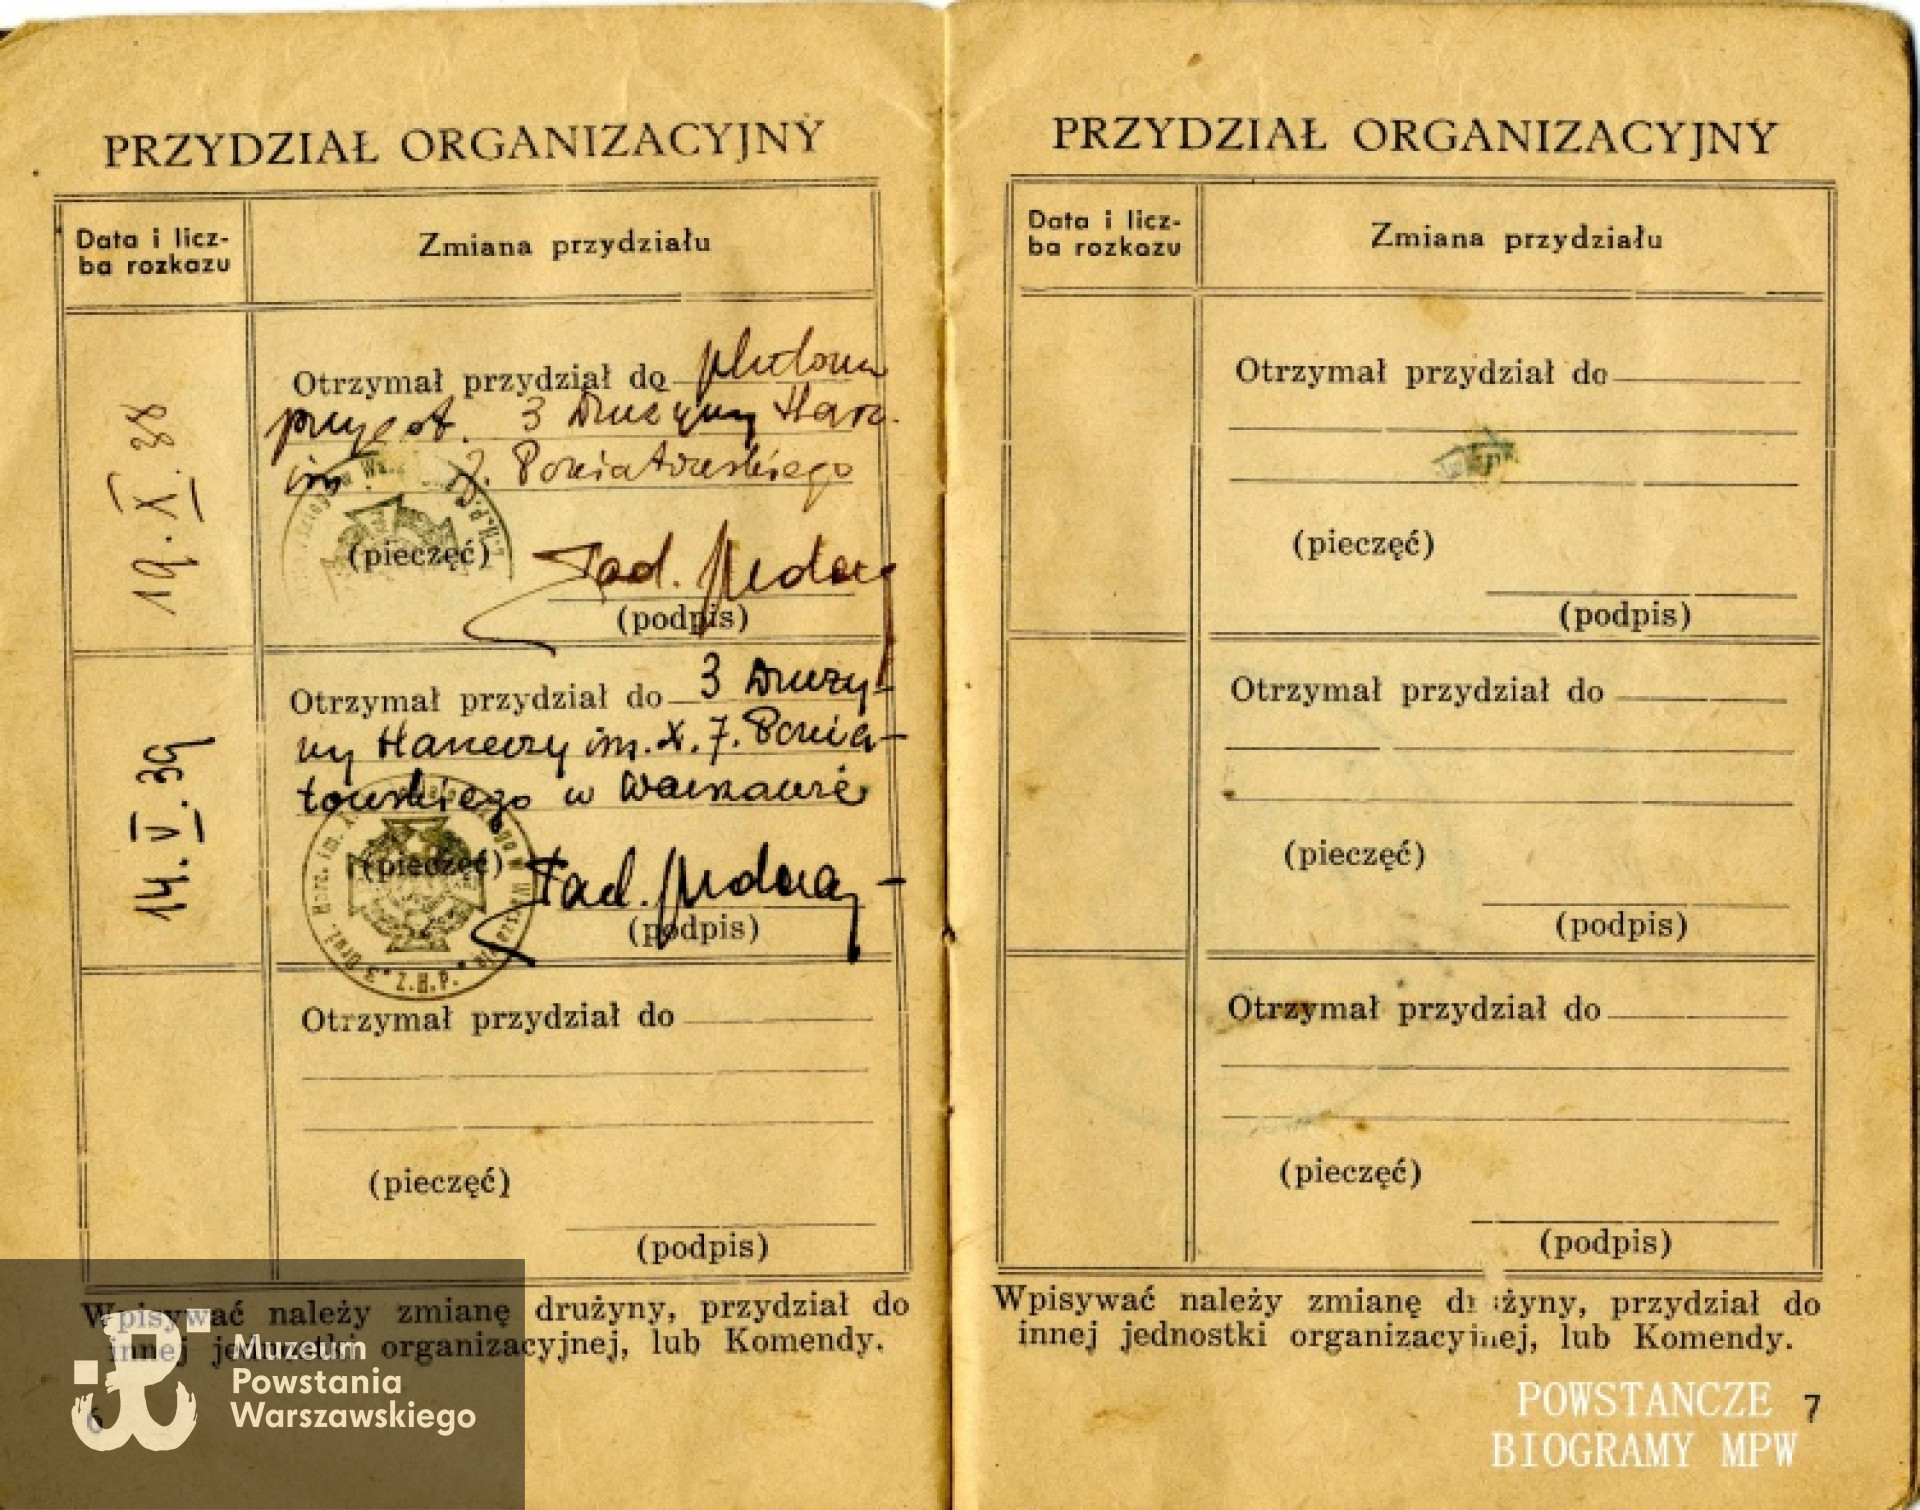 PRZYDZIAŁ ORGANIZACYJNY
Data i licz-
ba rozkazu
Zmiana przydziału
19.X.38
Otrzymał przydział do
3 Drużyny Harc.
im. J. Poniatowskiego
(pieczęć)
Tad.
(podpis)
14.V.39
Otrzymał przydział do 3 Druży-
ny Harcerzy im. X. J. Ponia-
towskiego w Warszawie
(pieczęć)
3 Druż. Harc. im. X. Z.H.P.
Tad.
(podpis)
Otrzymał przydział do
(pieczęć)
(podpis)
Wpisywać należy zmianę drużyny, przydział do
innej jednostki organizacyjnej, lub Komendy.
6
Muzeum
Powstania
Warszawskiego
PRZYDZIAŁ ORGANIZACYJNY
Data i licz-
ba rozkazu
Zmiana przydziału
Otrzymał przydział do
(pieczęć)
(podpis)
Otrzymał przydział do
(pieczęć)
(podpis)
Otrzymał przydział do
(pieczęć)
(podpis)
Wpisywać należy zmianę drużyny, przydział do
innej jednostki organizacyjnej, lub Komendy.
7
POWSTANCZE
BIOGRAMY MPW